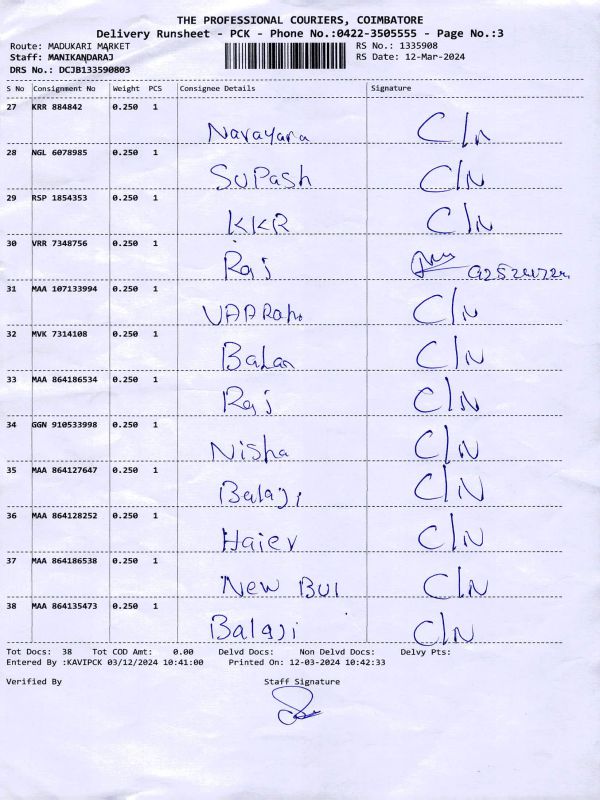 THE PROFESSIONAL COURIERS, COIMBATORE
Delivery Runsheet - PCK - Phone No.:0422-3505555 - Page No.:3
Route: MADUKARI MARKET RS No.: 1335908
Staff: MANIKANDARAJ RS Date: 12-Mar-2024
DRS No.: DCJB133590803
S No Consignment No Weight PCS Consignee Details Signature
27 KRR 884842 0.250 1 Narayana C/N
28 NGL 6078985 0.250 1 SUPash C/N
29 RSP 1854353 0.250 1 KKR C/N
30 VRR 7348756 0.250 1 Raj
31 MAA 107133994 0.250 1 C/N
32 MVK 7314108 0.250 1 Balan C/N
33 MAA 864186534 0.250 1 Raj C/N
34 GGN 910533998 0.250 1 Nisha C/N
35 MAA 864127647 0.250 1 Balaji C/N
36 MAA 864128252 0.250 1 C/N
37 MAA 864186538 0.250 1 New BUI C/N
38 MAA 864135473 0.250 1 Balaji C/N
Tot Docs: 38 Tot COD Amt: 0.00 Delvd Docs: Non Delvd Docs: Delvy Pts:
Entered By :KAVIPCK 03/12/2024 10:41:00 Printed On: 12-03-2024 10:42:33
Verified By Staff Signature